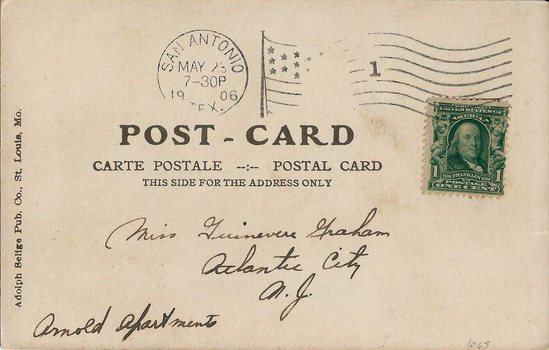 SAN ANTONIO
MAY 23
7-30P
19 06
TEX.
1
UNITED STATES OF
AMERICA
FRANKLIN
1 POSTAGE 1
ONE CENT
POST-CARD
CARTE POSTALE --:-- POSTAL CARD
THIS SIDE FOR THE ADDRESS ONLY
Adolph Selige Pub. Co., St. Louis, Mo.
Miss Guinevere Graham
Atlantic City
N. J.
Arnold Apartments
1065